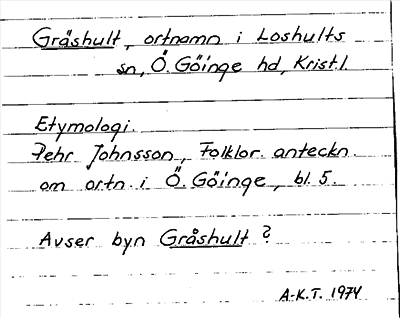 Gråshult, ortnamn i Loshults
sn, Ö. Göinge hd, Krist.l.
Etymologi.
Pehr Johnsson, Folklor. anteckn.
om ortn. i Ö. Göinge, bl. 5.
Avser byn Gråshult?
A-K.T. 1974